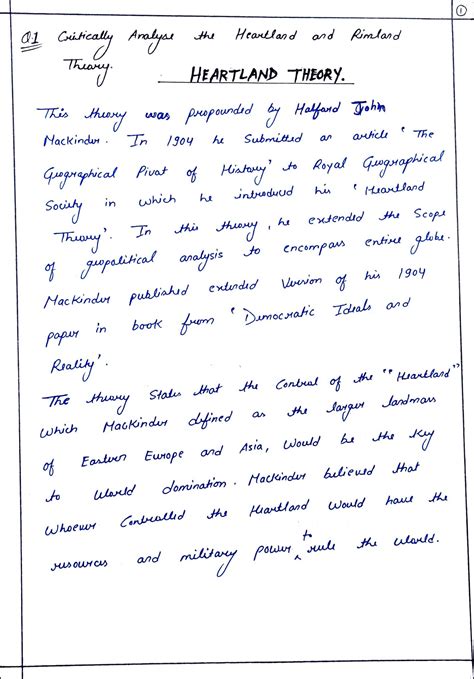 1
Q.1 Critically Analyse the Heartland and Rimland
Theory.
HEARTLAND THEORY.
This theory was propounded by Halford John
Mackinder. In 1904 he Submitted an article 'The
Geographical Pivat of History' to Royal Geographical
Society in which he introduced his 'Heartland
Theory'. In this theory, he extended the Scope
of geopolitical analysis to encompass entire globe.
Mackinder published extended Version of his 1904
paper in book from 'Democratic Ideals and
Reality'.
The theory States that the Control of the "Heartland"
which Mackinder defined as the larger landmass
of Eastern Europe and Asia, would be the key
to world domination. Mackinder believed that
Whoever Controlled the Heartland would have the
resources and military power to rule the world.